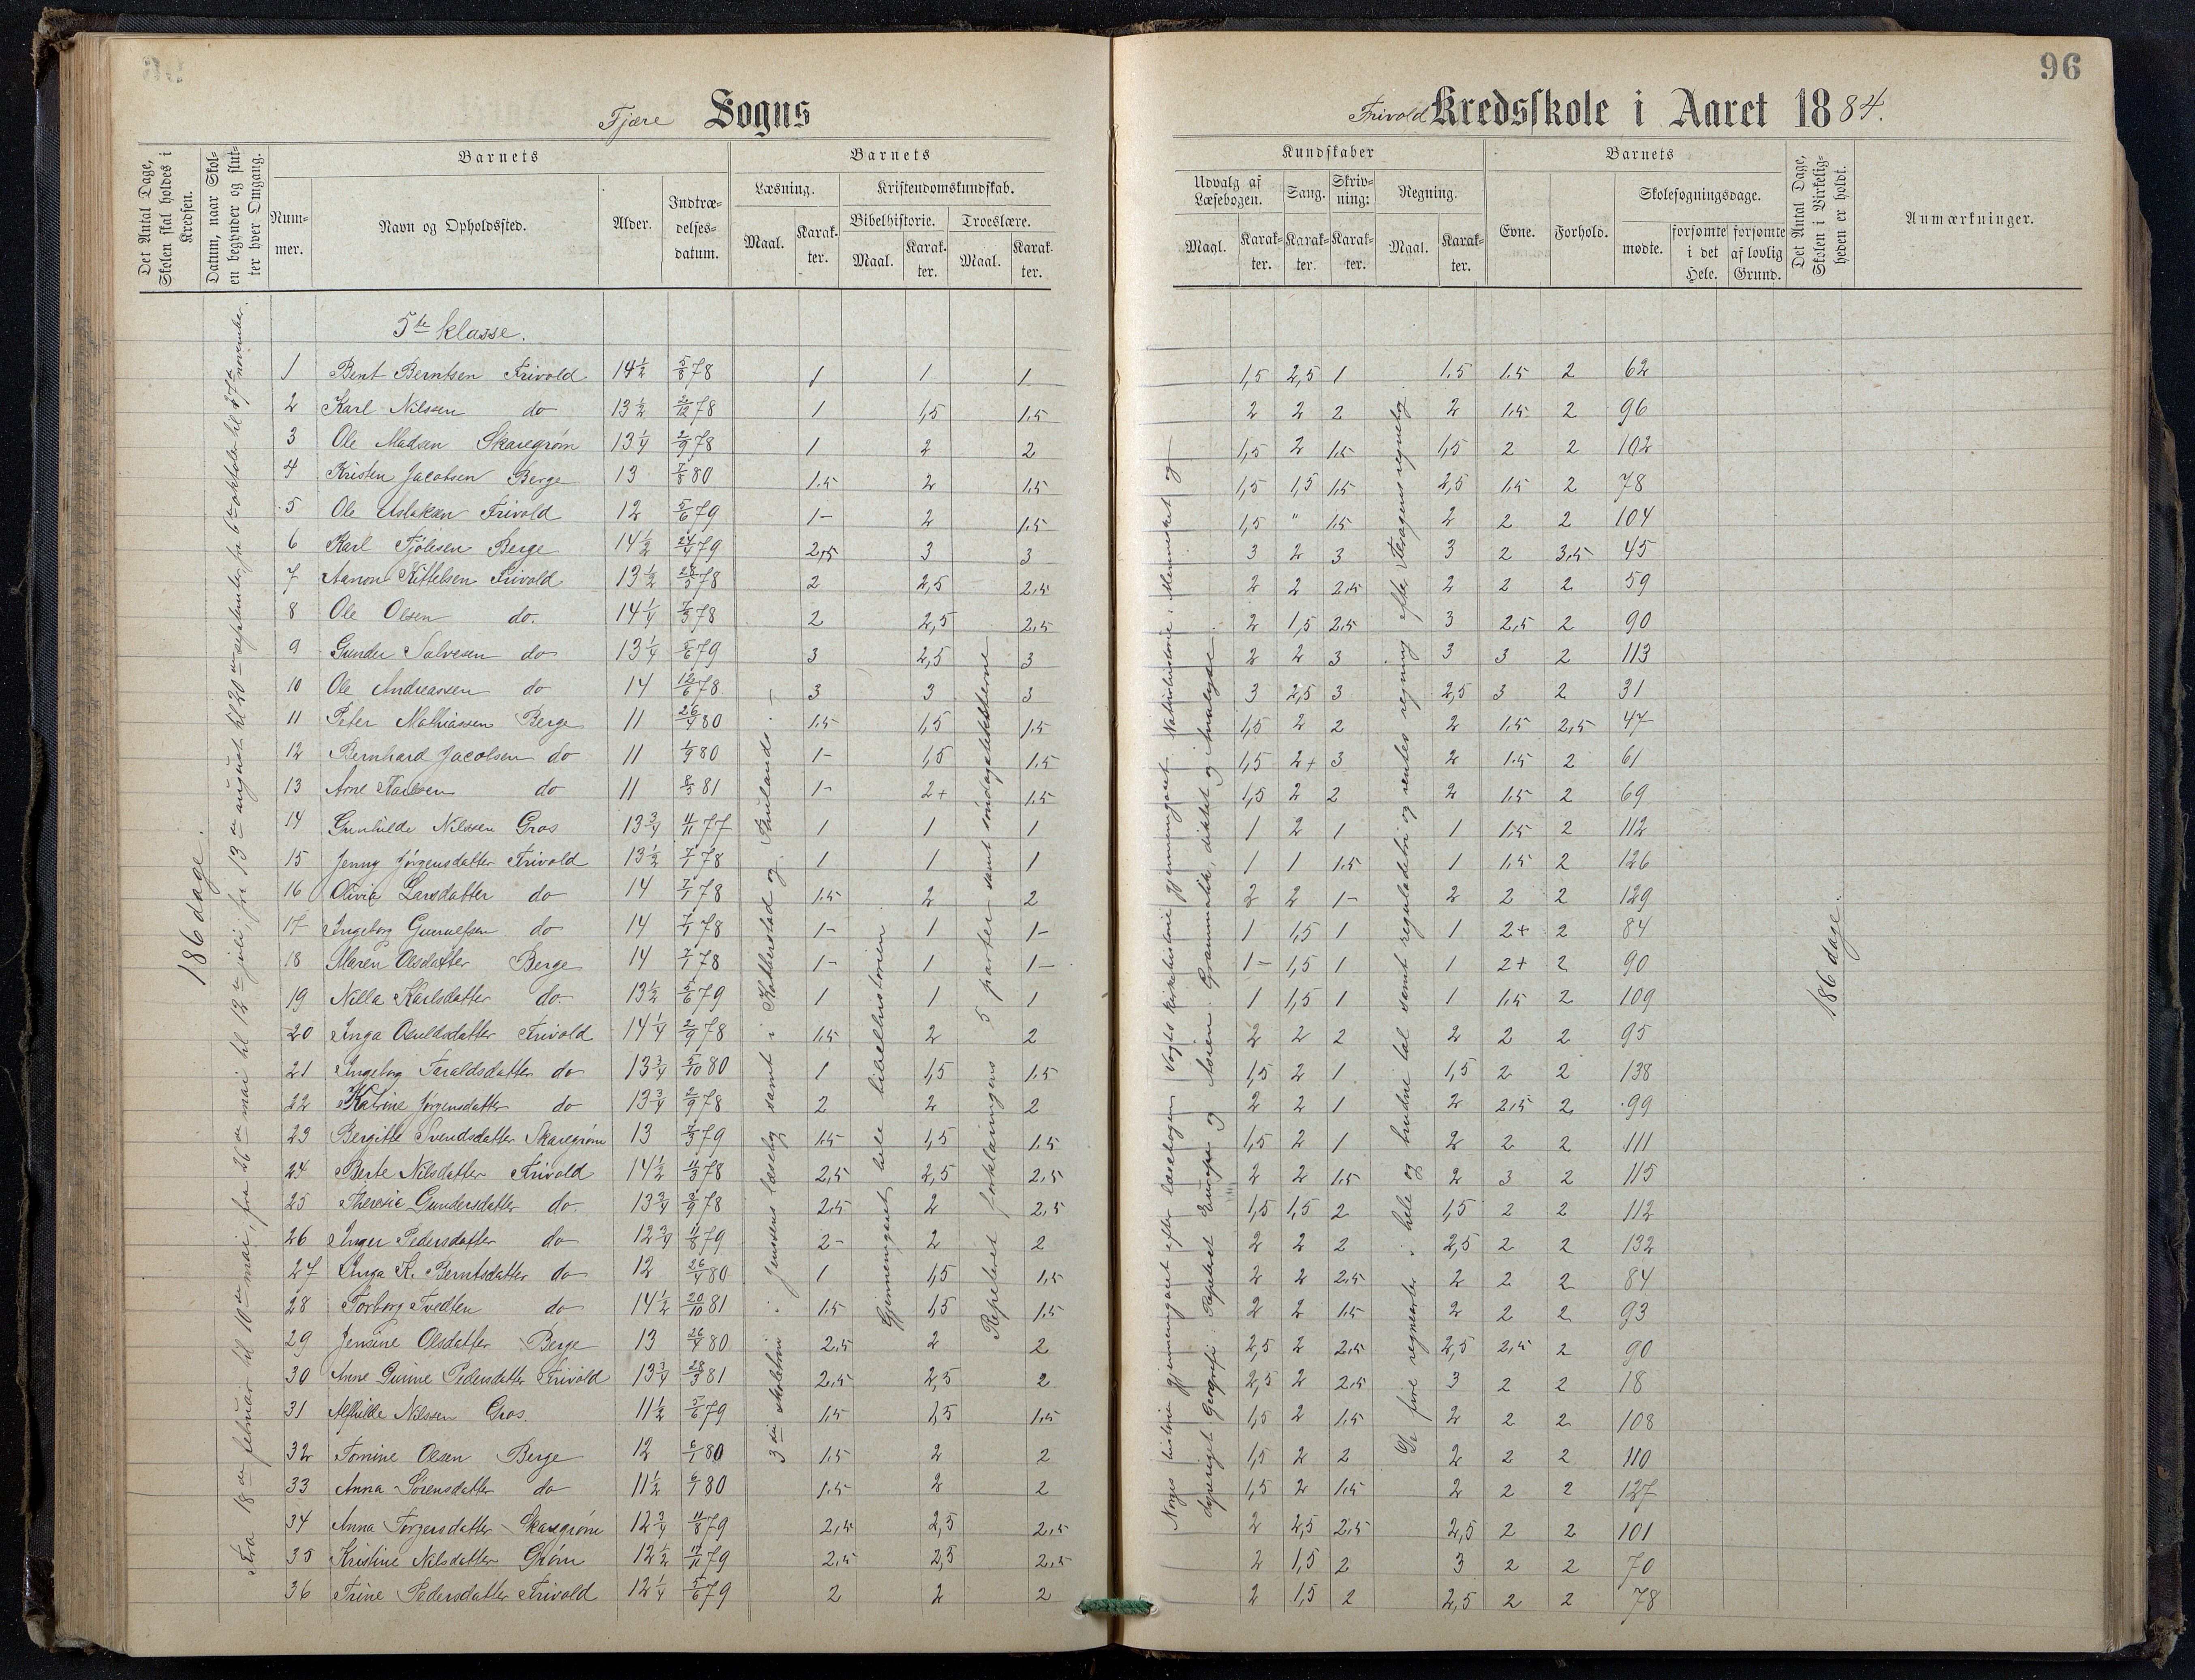 96
Fjære Sogns
Frivold Kredsskole i Aaret 1884.
Det Antal Dage, Skolen skal holdes i Kredsen.
Datum, naar Skolen begynder og slutter hver Omgang.
Barnets
Nummer.
Navn og Opholdssted.
Alder.
Indtrædelsesdatum.
Barnets
Læsning.
Maal.
Karakter.
Kristendomskundskab.
Bibelhistorie.
Maal.
Karakter.
Troeslære.
Maal.
Karakter.
Kundskaber
Udvalg af Læsebogen.
Maal.
Karakter.
Sang.
Karakter.
Skrivning:
Karakter.
Regning.
Maal.
Karakter.
Barnets
Evne.
Forhold.
Skolesøgningsdage.
mødte.
forsømte i det Hele.
forsømte af lovlig Grund.
Det Antal Dage, Skolen i Virkeligheden er holdt.
Anmærkninger.
186 dage.
Fra 18de februar til 10de mai, fra 26de mai til 12te juli, fra 13de august til 20de september, fra 6te oktober til november.
3die skoletrin i Jensens læsebog samt i Katherstad og
Gjennemgaaet hele bibelhistorien
Repeteret forklaringens 5 parter samt søndagstexterne
Norges historie gjennemgaaet efter læsebogen Vogts kirkehistorie gjennemgaaet. Naturhistorie: Mennesket og
dyreriget Geografi: Repeteret Europa og Asien. Grammatik, diktat og Analyse
De fire regnearter i hele og brudne tal samt reguladetri og rentes regning efter regnebog
186 dage.
5te klasse.
1 Bent Berntsen Frivold 14½ 5/8 78 1 1 1 1,5 2,5 1 1.5 1.5 2 62
2 Karl Nilssen do 13½ 2/12 78 1 1,5 1.5 2 2 2 2 1.5 2 96
3 Ole Madsen Skaregrøm 13¼ 2/9 78 1 2 2 1,5 2 1.5 1,5 2 2 102
4 Kristen Jacobsen Berge 13 7/8 80 1.5 2 1.5 1,5 1,5 1.5 2,5 1.5 2 78
5 Ole Aslaksen Frivold 12 5/6 79 1- 2 1.5 1,5 " 1.5 2 2 2 104
6 Karl Berge 14½ 24/4 79 2,5 3 3 3 2 3 3 2 3.5 45
7 Aanon Kittelsen Frivold 13½ 28/3 78 2 2,5 2.5 2 2 2.5 2 2 2 59
8 Ole Olsen do. 14¼ 7/3 78 2 2,5 2.5 2 1,5 2.5 3 2,5 2 90
9 Gunder Salvesen do 13¼ 5/6 79 3 2,5 3 2 2 3 3 3 2 113
10 Ole Andreassen do 14 12/6 78 3 3 3 3 2,5 3 2,5 3 2 31
11 Peter Mathiassen Berge 11 26/4 80 1.5 1,5 1.5 1,5 2 2 2 1.5 2,5 47
12 Bernhard Jacobsen do 11 1/9 80 1- 1,5 1.5 1,5 2+ 3 2 1.5 2 61
13 Arne do 11 8/3 81 1- 2+ 1.5 1,5 2 2 2 1.5 2 69
14 Gunhilde Nilssen Gros 13¾ 4/11 77 1 1 1 1 2 1 1 1.5 2 112
15 Jenny Jørgensdatter Frivold 13½ 7/1 78 1 1 1 1 1 1.5 1 1.5 2 126
16 Olivia Larsdatter do 14 7/1 78 1.5 2 2 2 2 1- 2 2 2 129
17 Ingeborg Gunnulfsen do 14 7/1 78 1- 1 1- 1 1,5 1 1 2+ 2 84
18 Maren Olsdatter Berge 14 7/1 78 1- 1 1- 1- 1,5 1 1 2+ 2 90
19 Nilla Karlsdatter do 13½ 5/6 79 1 1 1 1 1,5 1 1 1.5 2 109
20 Inga Osuldsdatter Frivold 14¼ 2/9 78 1.5 2 2 2 2 2 2 2 2 95
21 Ingeborg Taraldsdatter do 13¾ 5/10 80 1 1,5 1.5 1,5 2 1 1,5 2 2 138
22 Katrine Jørgensdatter do 13¾ 2/9 78 2 2 2 2 2 1 2 2,5 2 99
23 Bergitte Svendsdatter Skaregrøm 13 7/3 79 1.5 1,5 1.5 1,5 2 1 2 2 2 111
24 Berte Nilsdatter Frivold 14½ 11/3 78 2,5 2,5 2,5 2 2 1.5 2 3 2 115
25 Theresie Gundersdatter do 13¾ 2/9 78 2.5 2 2,5 1,5 1,5 2 1,5 2 2 112
26 Inger Pedersdatter do 12¾ 11/8 79 2- 2 2 2 2 2 2,5 2 2 132
27 Inga K. Berntsdatter do 12 26/4 80 1 1,5 1,5 2 2 2.5 2 2 2 84
28 Torborg Tvedten do 14½ 20/10 81 1.5 1,5 1.5 2 2 1.5 2 2 2 93
29 Jensine Olsdatter Berge 13 26/4 80 2.5 2 2 2,5 2 2.5 2,5 2,5 2 90
30 Anne Gurine Pedersdatter Frivold 13¾ 28/3 81 2.5 2,5 2 2,5 2 2.5 3 2 2 18
31 Alfhilde Nilssen Gros 11½ 5/6 79 1.5 1,5 1.5 1,5 2 1.5 2 2 2 108
32 Tomine Olsen Berge 12 6/1 80 1.5 2 2 1,5 2 2 2 2 2 110
33 Anna Sørensdatter do 11½ 6/1 80 1.5 2 2 1,5 2 1.5 2 2 2 127
34 Anna Torgersdatter Skaregrøm 12¾ 11/8 79 2,5 2,5 2.5 2 2,5 2.5 2,5 2 2 101
35 Kristine Nilsdatter Grøm 12½ 17/11 79 2.5 2,5 2.5 2 1,5 2 3 2 2 70
36 Trine Pedersdatter Frivold 12¼ 5/6 79 2 2 2 2 1,5 2 2,5 2 2 78